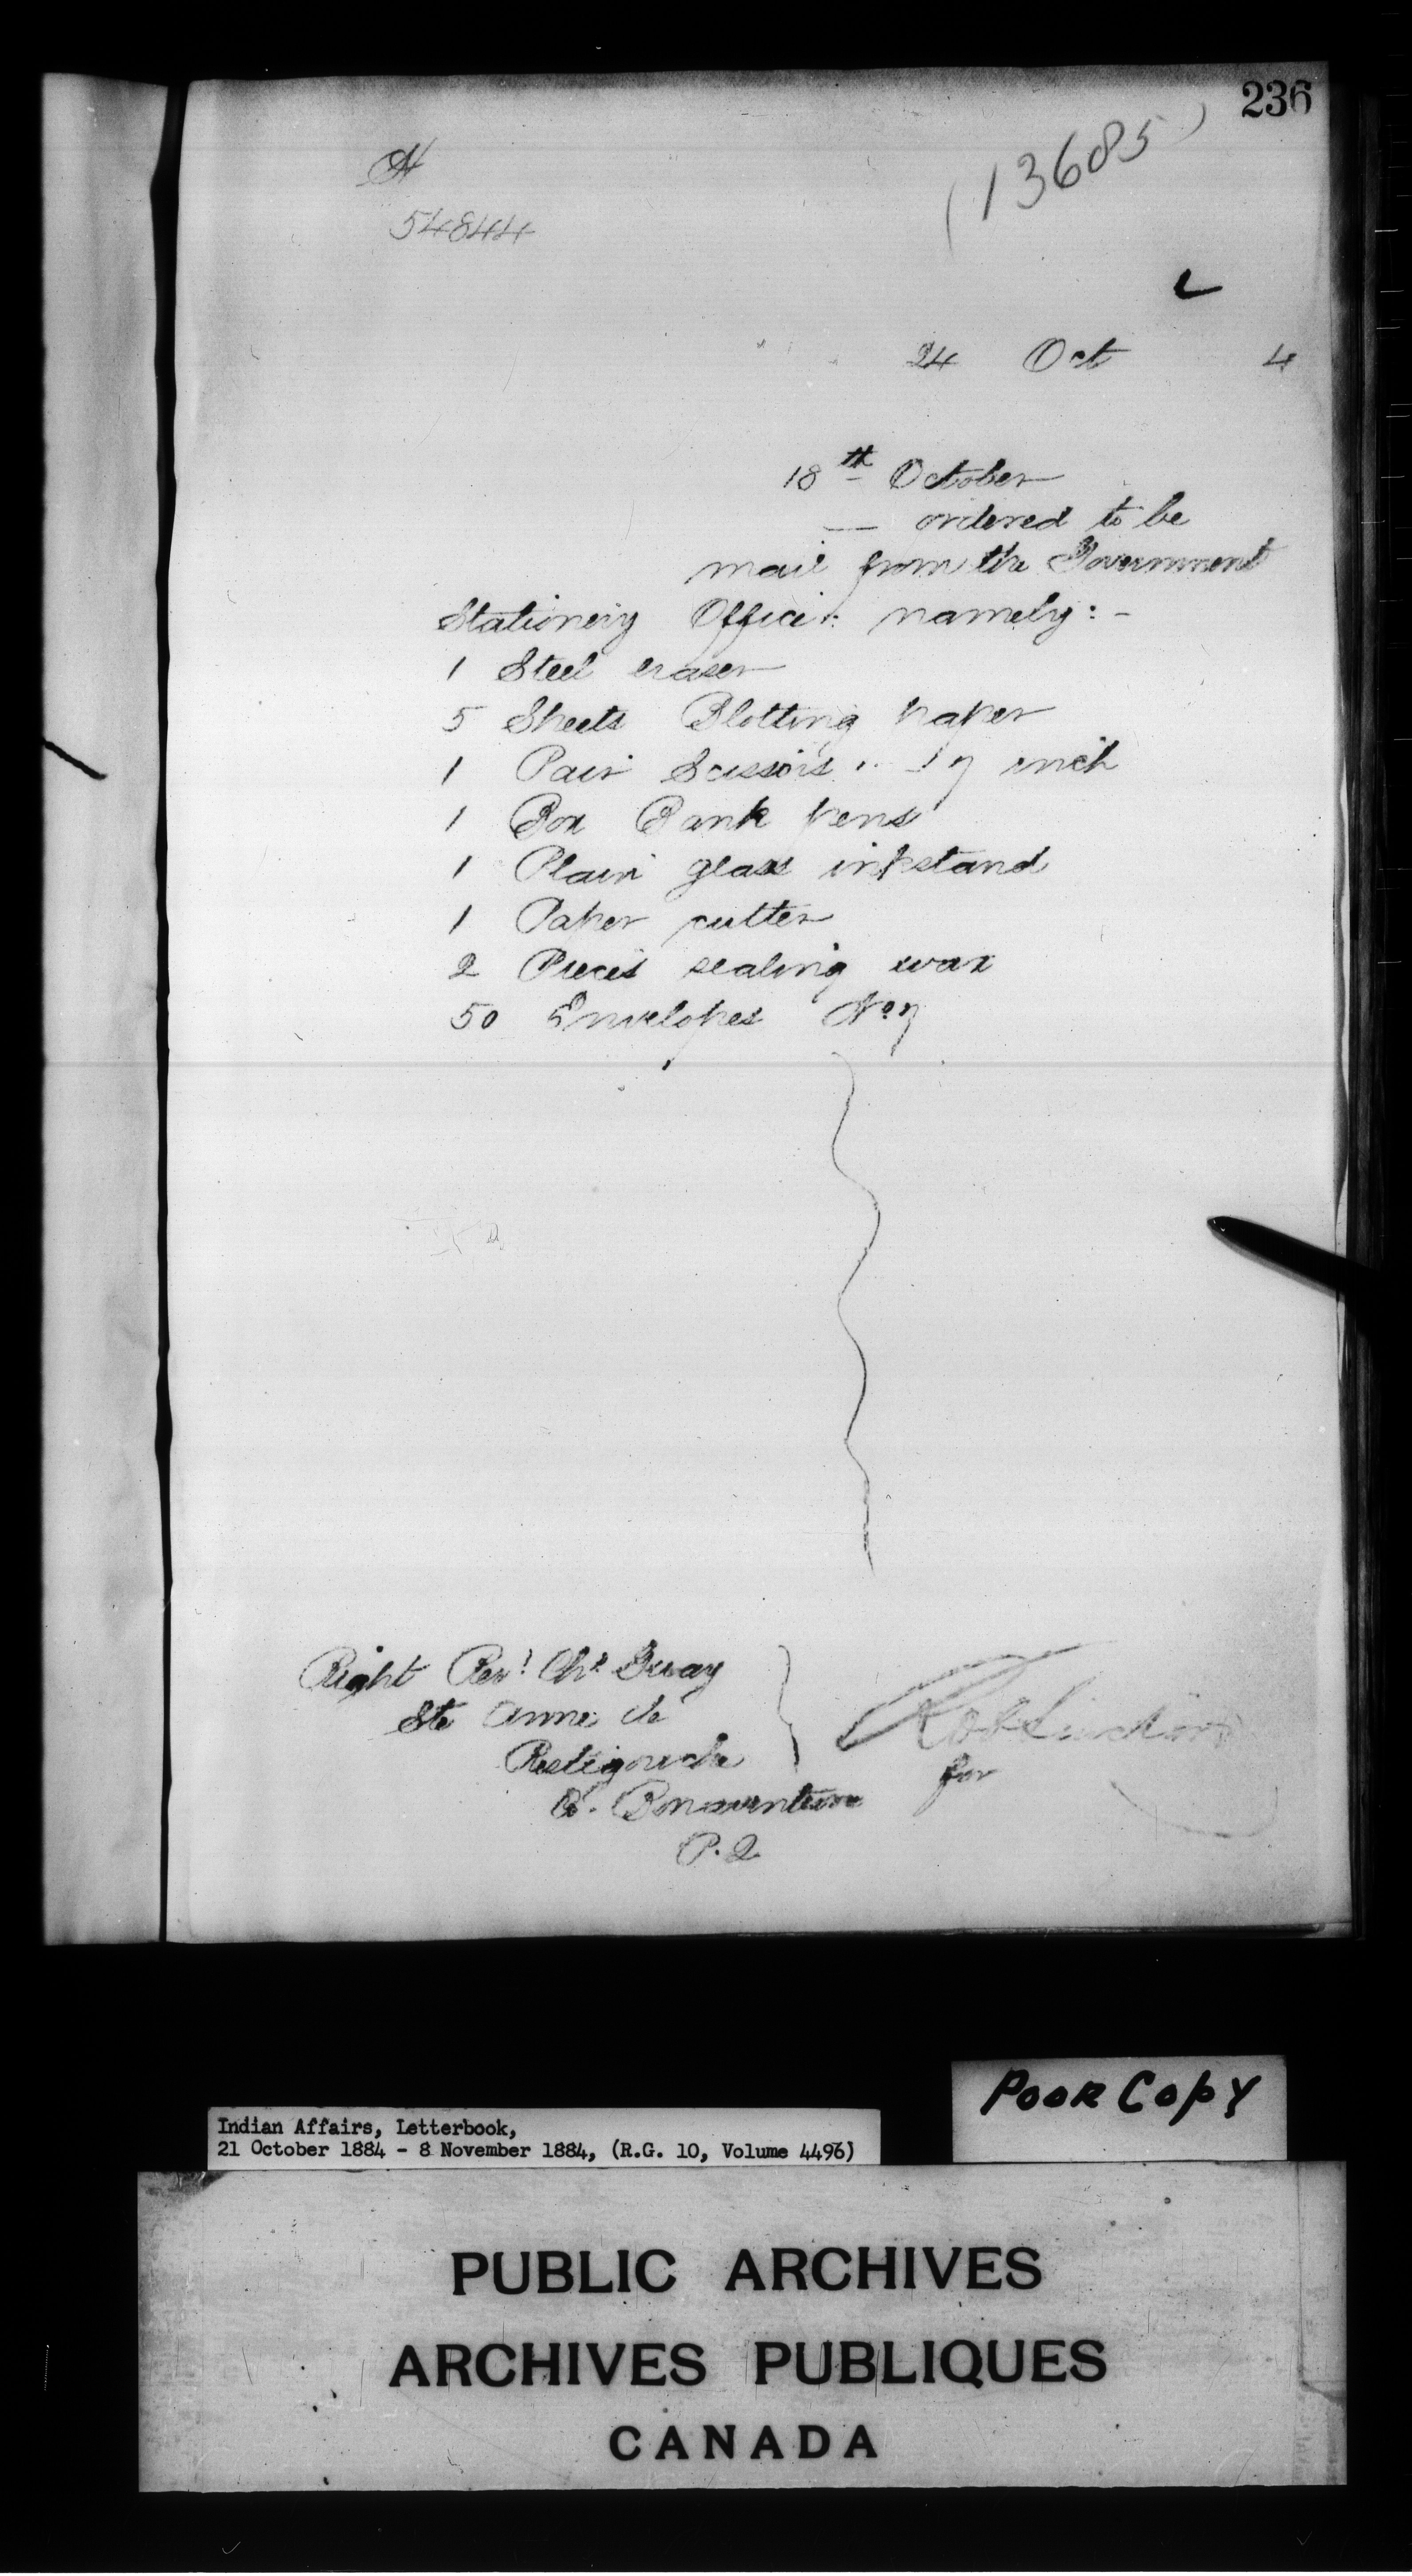 236
(13685)
54844
24 Oct 4
18th October
ordered to be
mail from the Government
Stationery Office: namely:-
1 Steel eraser
5 Sheets Blotting paper
1 Pair Scissors 7 inch
1 Box Bank pens
1 Plain glass inkstand
1 Paper cutter
2 Pieces sealing wax
50 Envelopes No 7
Right Revd Chs
Ste Anne de
Restigouche
Co. Bonaventure
P.Q
for
Poor Copy
Indian Affairs, Letterbook,
21 October 1884 - 8 November 1884, (R.G. 10, Volume 4496)
PUBLIC ARCHIVES
ARCHIVES PUBLIQUES
CANADA